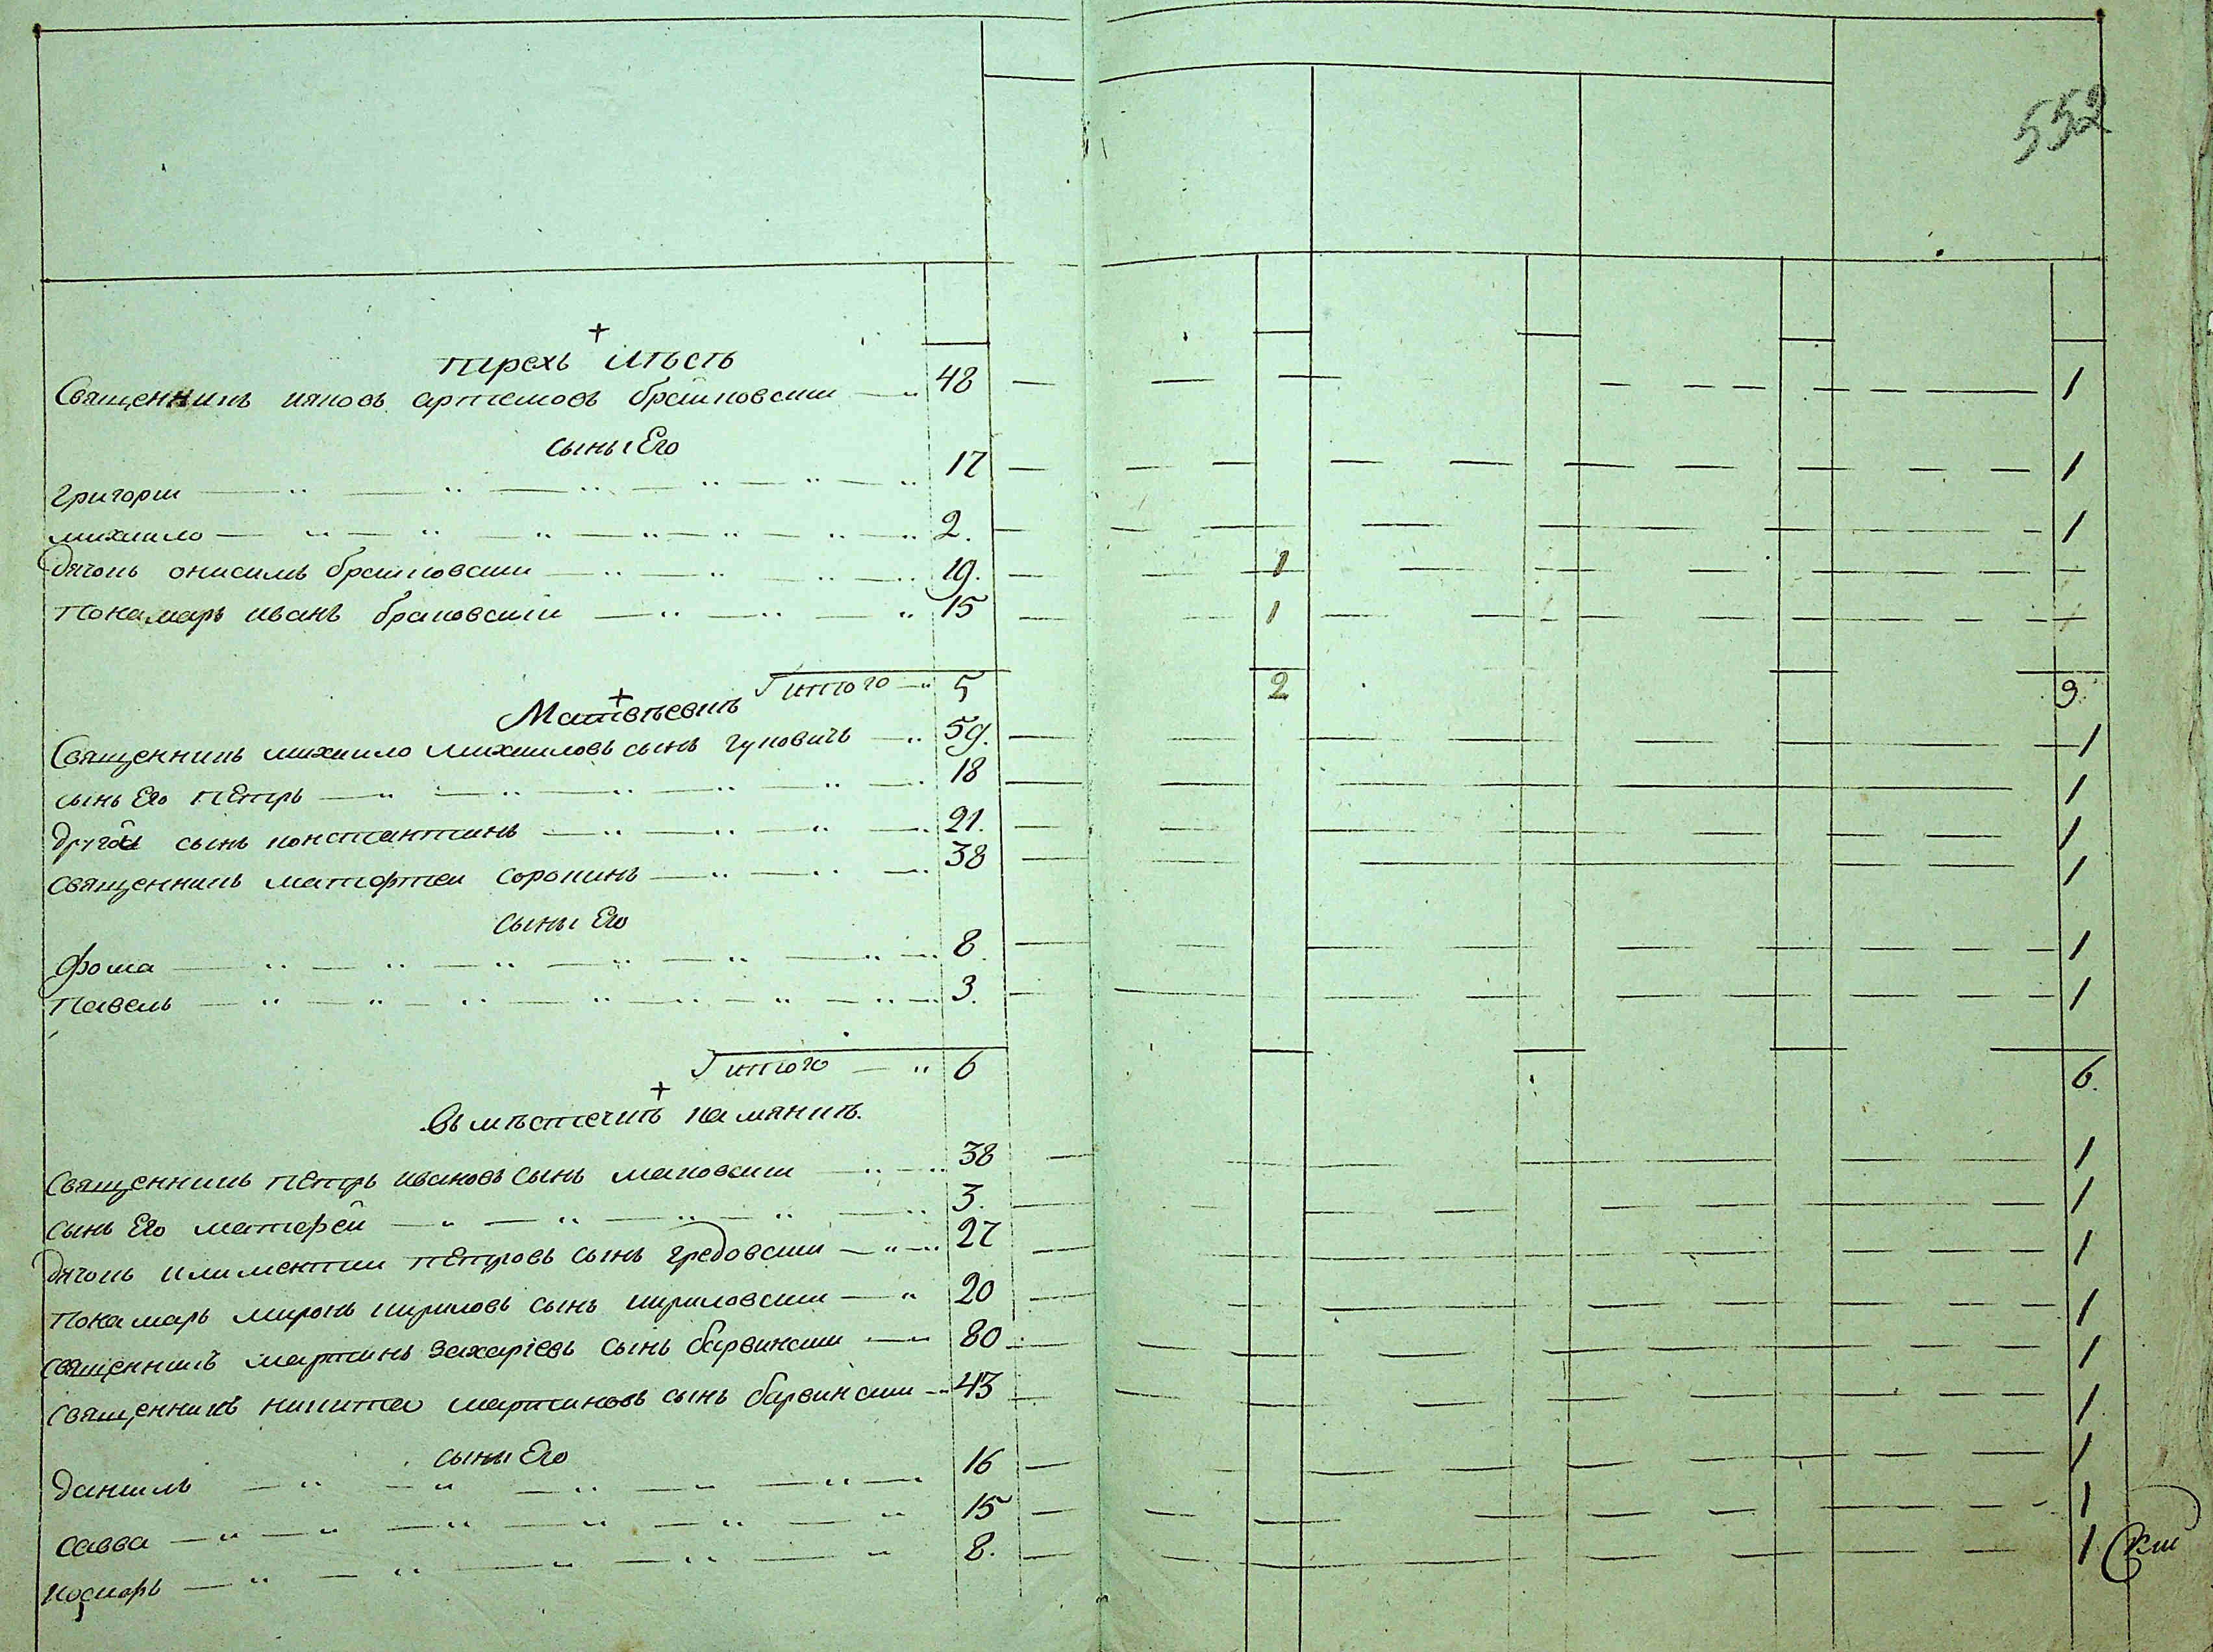 552
Трехъ Избъ
Священникъ ияковъ артемовъ браиковский 48 1
сыны Его
григории 17 1
михаило 2. 1
дячокъ онисимъ браиловский 19. 1
Понамарь иванъ браиловский 15 1
итого 5 2 3
Матвѣевкѣ
Священникъ михаило михаиловъ сынъ гуковичъ 59. 1
сынъ Его Петръ 18 1
другой сынъ константинъ 21. 1
священникъ матфеи сорокинъ 38 1
сыны Его
Фома 8. 1
Павелъ 3. 1
итого 6 6.
въ мѣстечкѣ камянкѣ
Священникъ Петръ ивановъ сынъ маковский 38 1
сынъ Его матфей 3. 1
дячокъ климентии Петровъ сынъ гредовский 27 1
Понамарь миронъ кириловъ сынъ кириловский 20 1
Священникъ мартинъ захариевъ сынъ барвинский 80 1
Священникъ никита мартиновъ сынъ барвинский 43 1
сыны Его
даниилъ 16 1
савва 15 1
8. 1